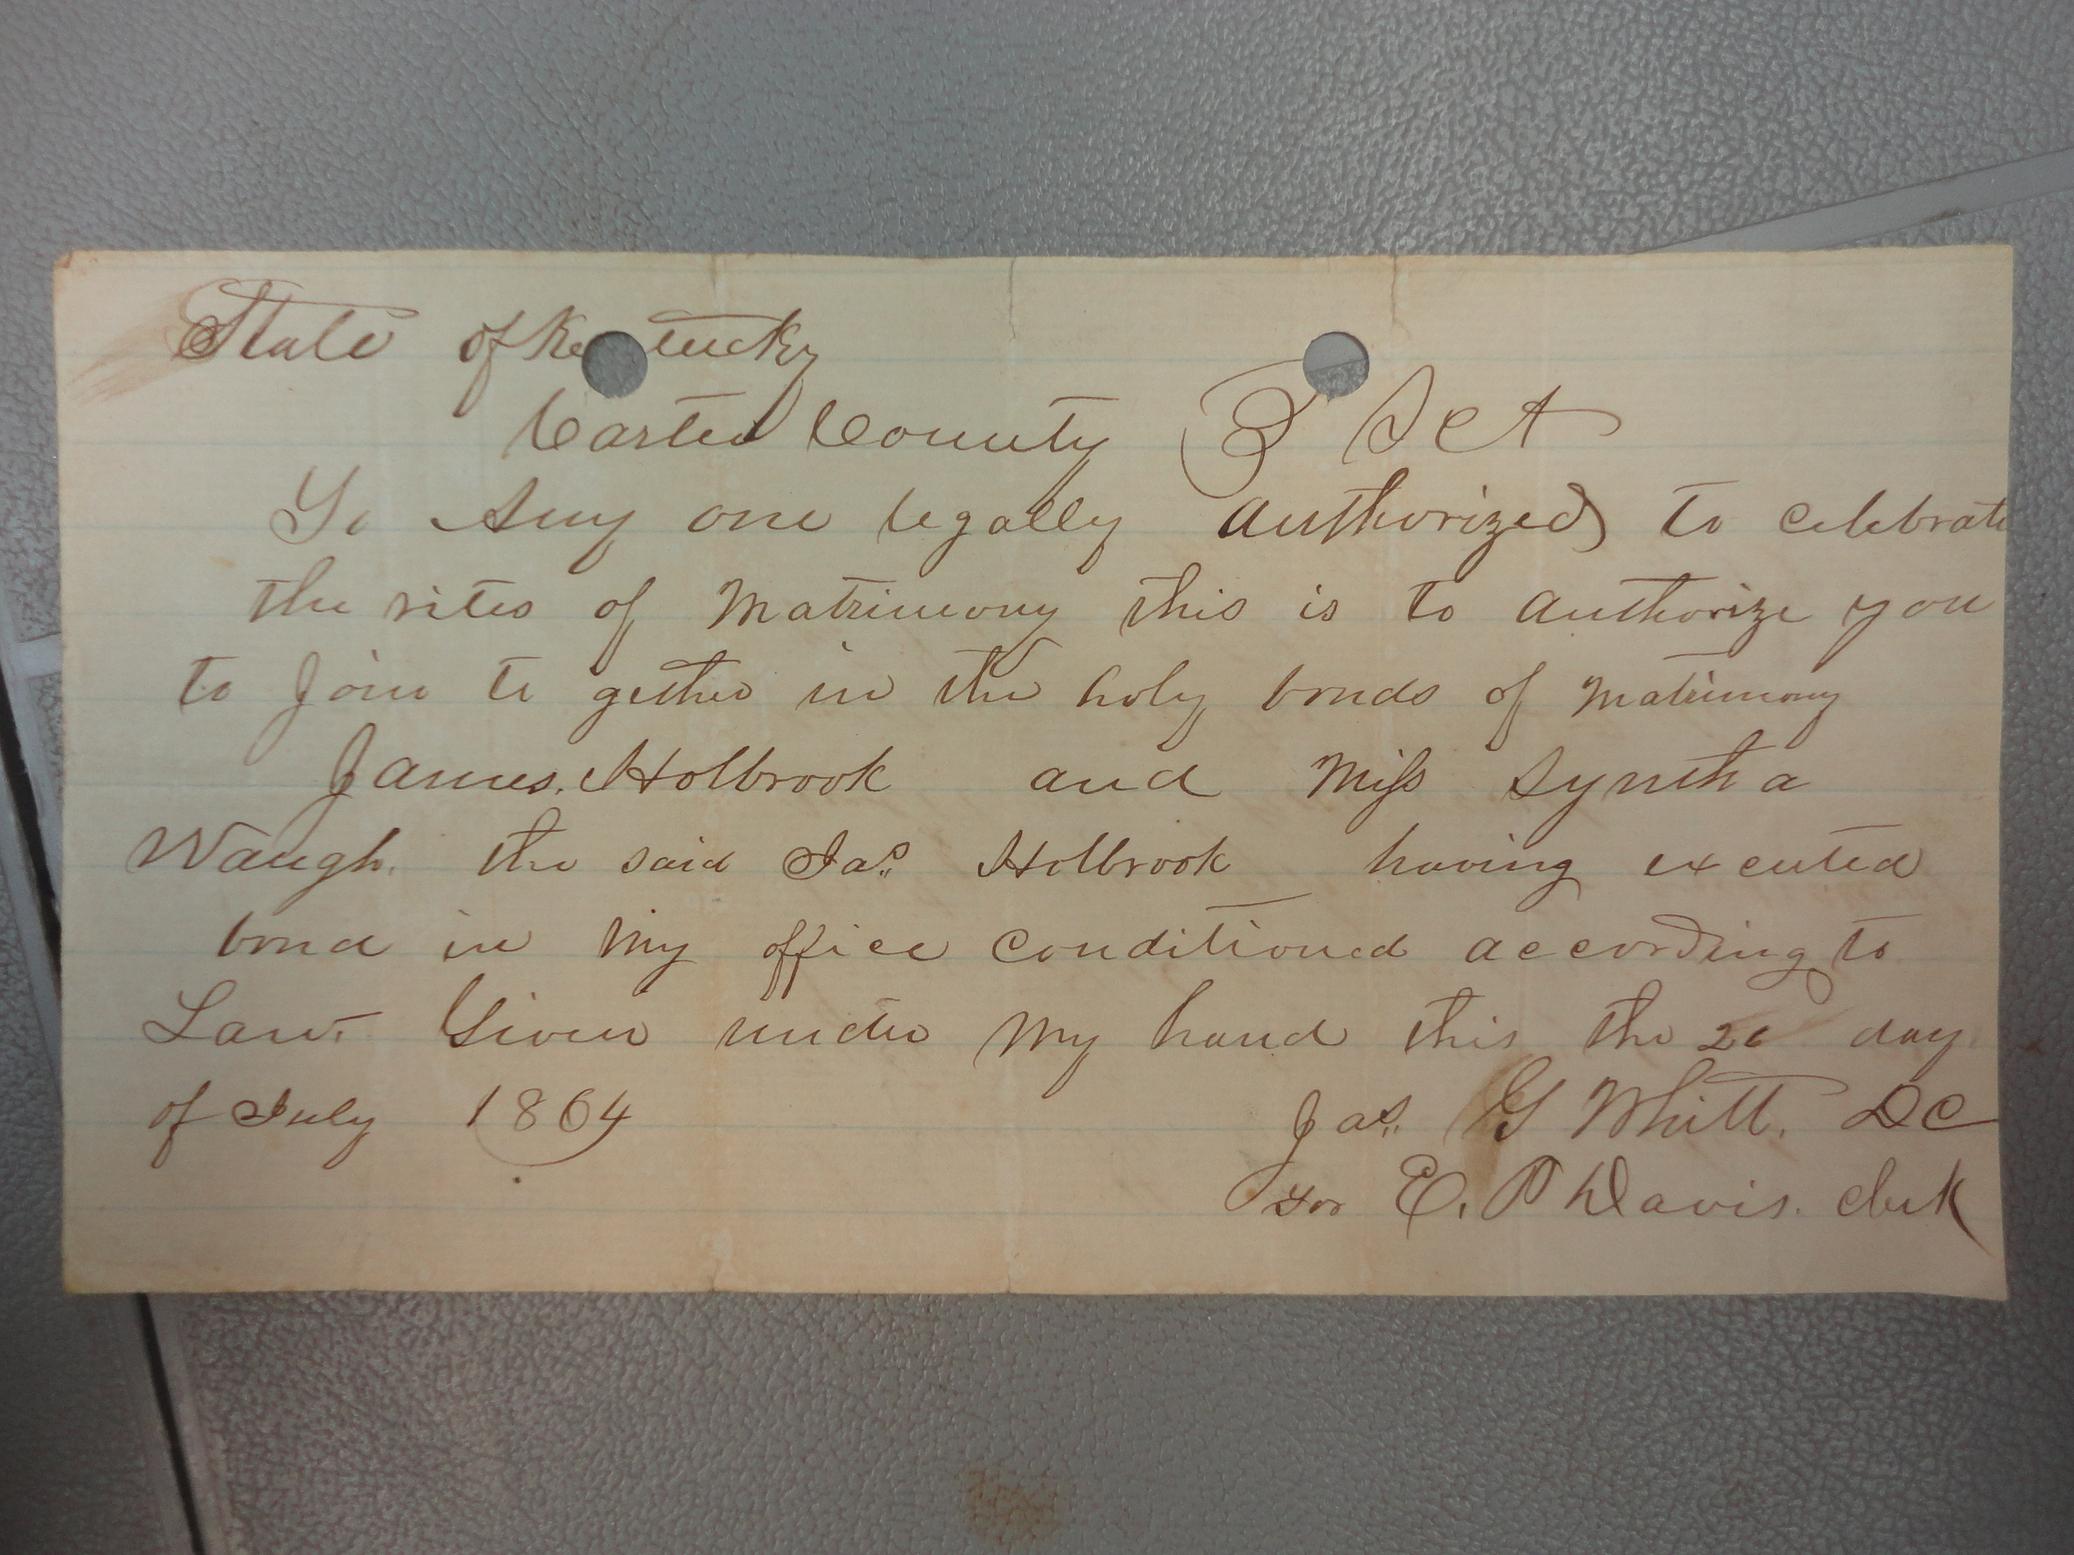 State of Kentucky
Carter County } Sct
To Any one legally authorized to celebrate
the rites of Matrimony this is to authorize you
to Join to gether in the holy bonds of Matrimony
James. Holbrook and Miss Syntha
Waugh. the said Jas. Holbrook having executed
bond in my office conditioned according to
Law. Given under my hand this the 20 day
of July 1864
Jas. G Whitt. DC
For E. P Davis. clerk